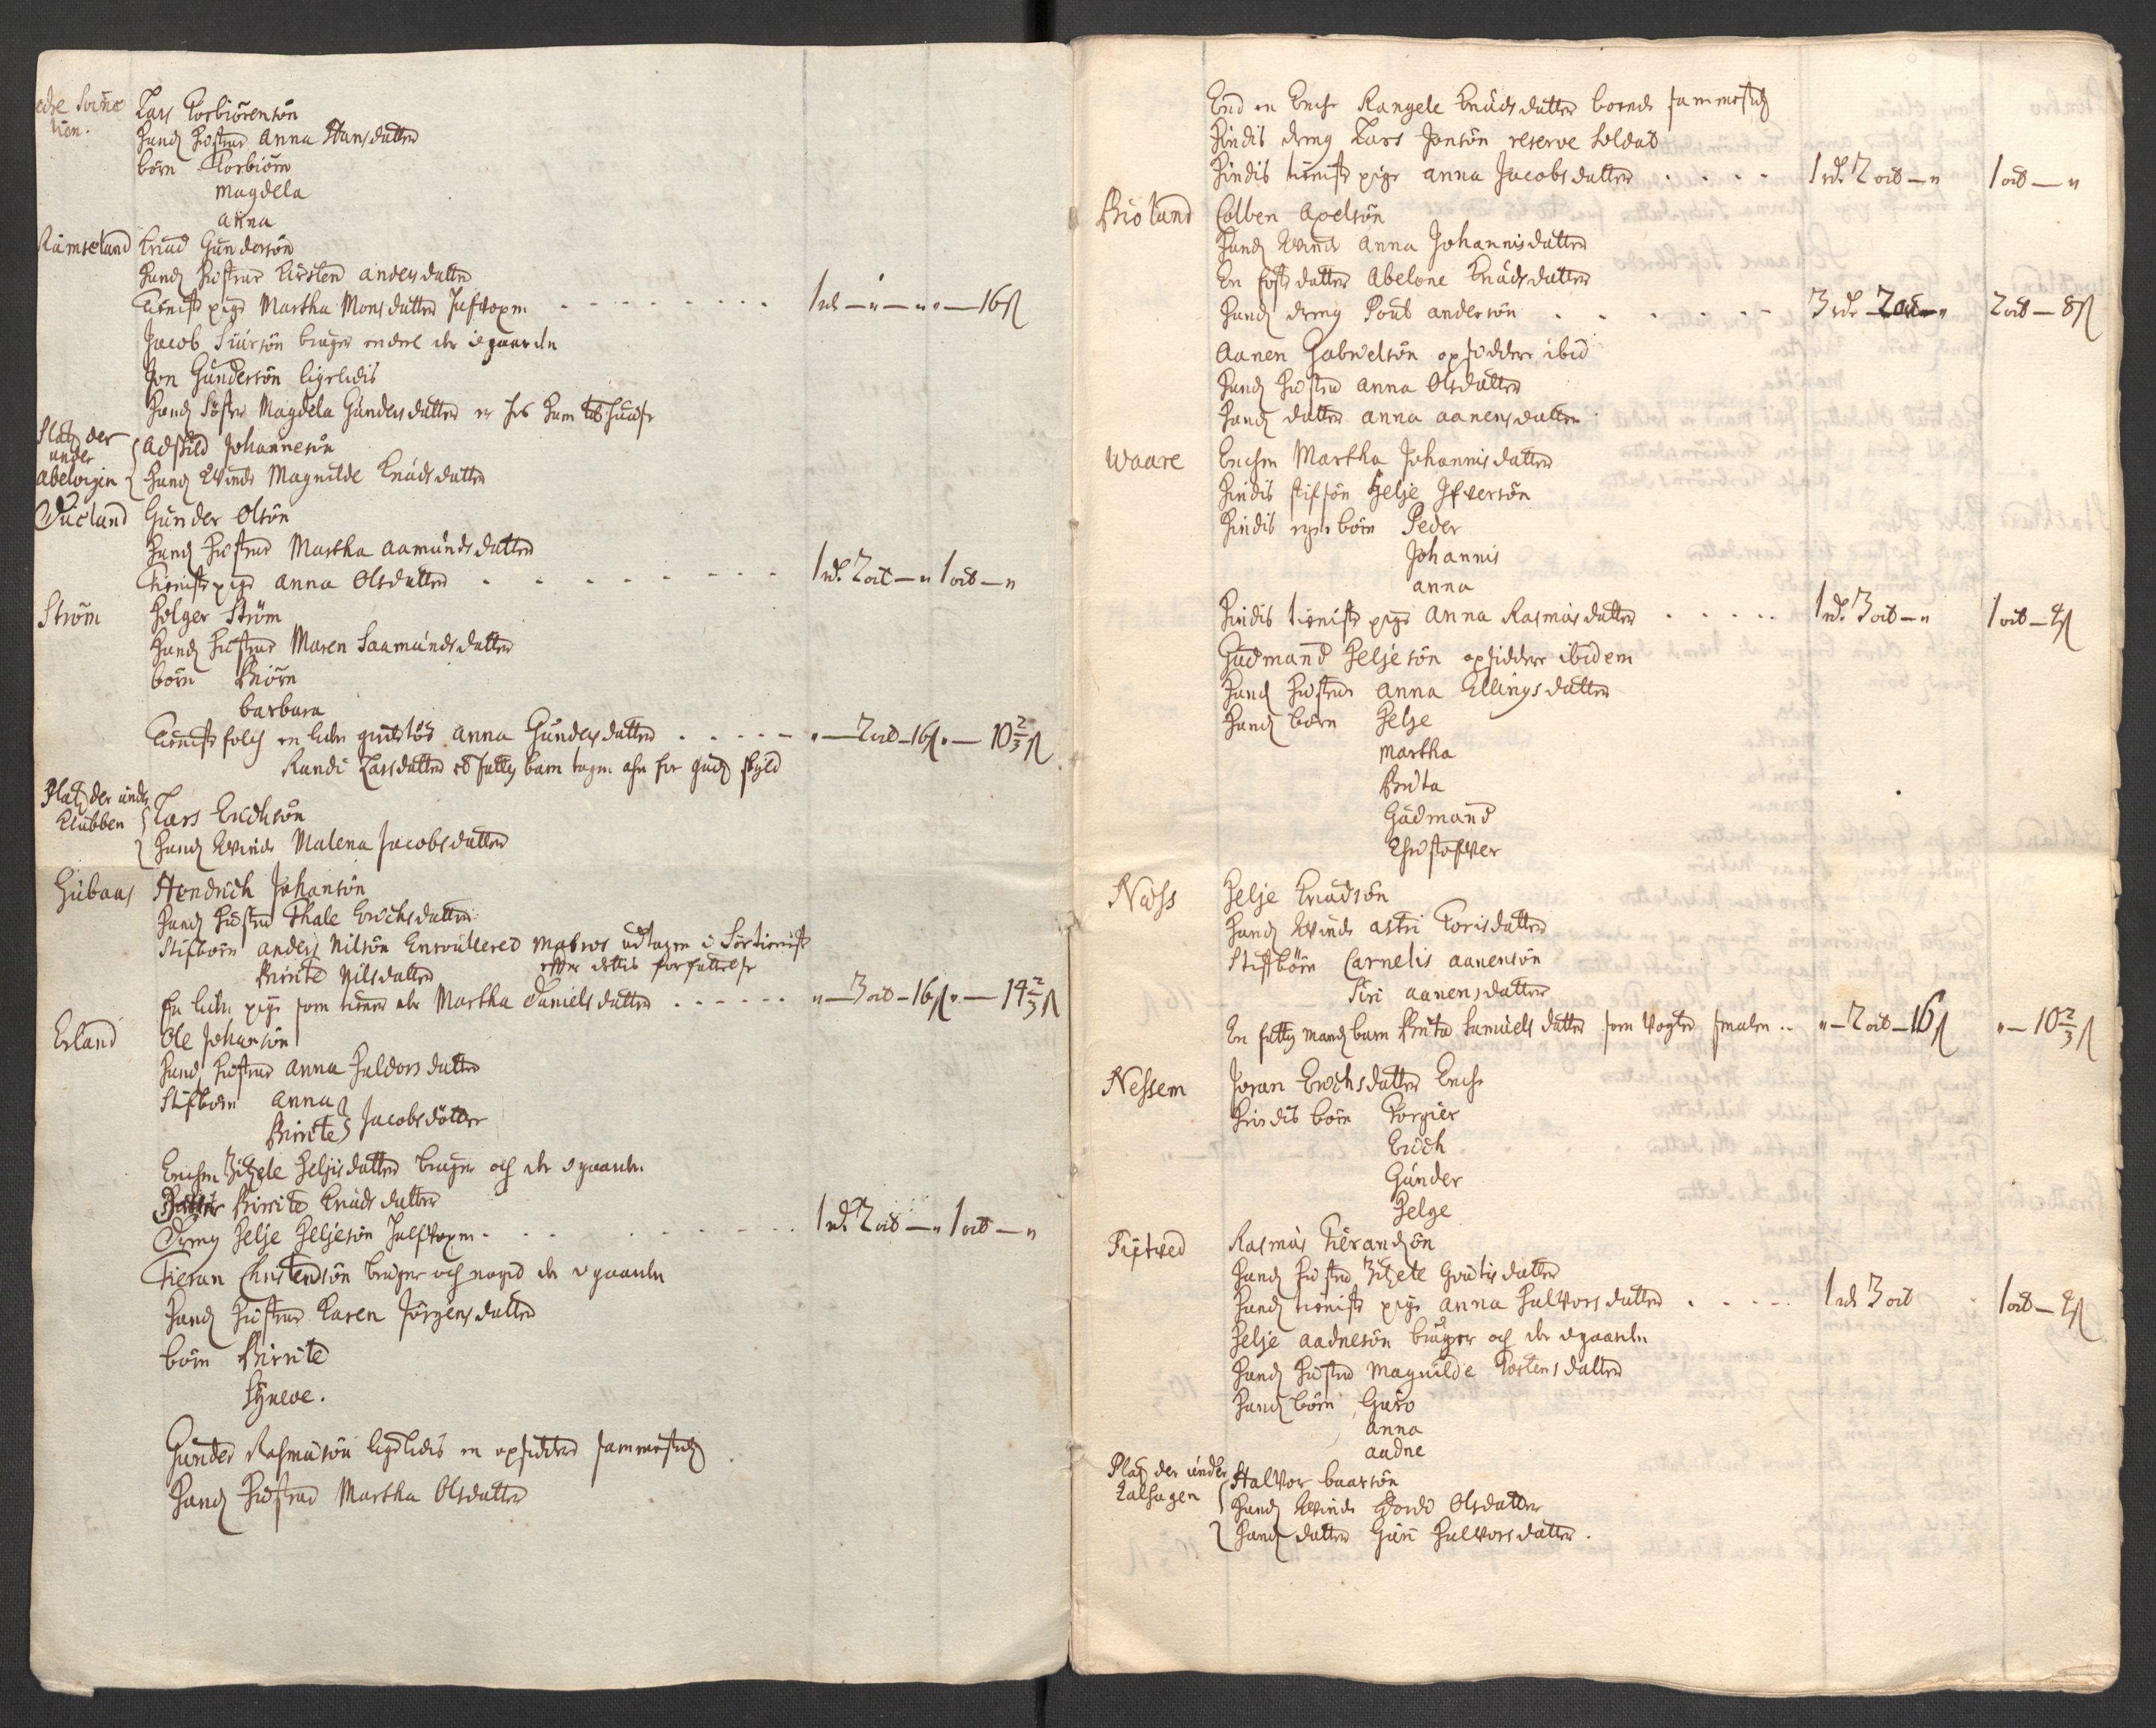 Lars Torbiörensön
hands hustrue Anna Hansdatter
börn Torbiörn
Magdela
Anna
Ramseland Knud Gundersön
hands hustrue Kirsten Andersdatter
Tieniste pige Martha Monsdatter halfvoxen 1 rd — " — " " — 16 ß
Jacob Siursön bruger endeel der i gaarden
Jon Gundersön ligeledis
hands Söster Magdela Gundersdatter er hos ham til huuse
Platz der under Abelvigen Adskild Johannesön
hands Qvinde Magnilde Knudsdatter
Dueland Gunder Olsön
hands hustrue Martha Aamundsdatter
Tieniste pige Anna Olsdatter 1 rd. 2 ort — " 1 ort — "
Ström Holger Ström
hands hustrue Maren Saamundsdatter
börn Biörn
Barbara
Tieniste folch en liden Anna Gundersdatter " — 2 ort — 16 ß " — 10 2/3 ß
Randi Larsdatter et fattig barn tagen ahn for guds skyld
Platz der under Klubben Lars Erichsön
hands Qvinde Malena Jacobsdatter
Hendrich Johansön
hands hustrue Thale Erichsdatter
Stifbörn Anders Nilsön Enroulleret Matros udtagen i Söe tieniste
Birrite Nilsdatter effter dettis forfattelse
En liden pige som tiener der Martha Danielsdatter " — 3 ort — 16 ß " — 14 2/3 ß
Erland Ole Johansön
hands hustrue Anna Haldorsdatter
Stifbörn Anna
Birrite Jacobsdötter
Enchen Zitzele Heljesdatter bruger och der i gaarden
Datter Birrite Knudsdatter
Dreng Helje Heljesön halfvoxen 1 rd. 2 ort — " 1 ort — "
Tieran Christensön bruger och noget der i gaarden
hands hustrue Karen Jörgensdatter
börn Birrite
Syneve.
Gunder Rasmusön ligeledis en opsidder sammesteds
hands hustrue Martha Olsdatter
End en Enche Rangele Knudsdatter boende sammesteds
hindis dreng Lars Jonsön reserve Soldat
hindis tieniste pige Anna Jacobsdatter 1 rd. 2 ort — " 1 ort — "
Bioland Colben Axelsön
hands Qvinde Anna Johannisdatter
En foster datter Abelone Knudsdatter
hands dreng Poul Andersön 3 rd. 2 ort — " 2 ort — 8 ß
Aanen Gabrielsön opsidder ibid
hands hustrue Anna Olsdatter
hands datter Anna Aanensdatter
Waare Enchen Martha Johannisdatter
hindis stifsön Helje Ifversön
hindis egne börn Peder
Johannis
Anna
hindis tieniste pige Anna Rasmusdatter 1 rd. 3 ort — " 1 ort — 4 ß
Gudmand Heljesön opsidder ibidem
hands hustrue Anna Ellingsdatter
hands börn Helje
Martha
Brita
Gudmand
Christoffer
Næss Helje Knudsön
hands Qvinde Astri Torisdatter
Stifbörn Carnelis Aanensön
Siri Aanensdatter
En fattig mands barn Brita Samuelsdatter som vogter smalen " — 2 ort — 16 ß " — 10 2/3 ß
Nessem Joran Erichsdatter Enche
hindis börn Torgier
Erich
Gunder
Helge
Tiptved Rasmus Tierandsön
hands hustrue Zitzele Govertsdatter
hands tieniste pige Anna Halvorsdatter 1 rd 3 ort 1 ort — 4 ß
Helje Aadnesön bruger och der i gaarden
hands hustrue Magnilde Tostensdatter
hands börn Guro
Anna
Aadne
Platz der under Kalhagen Halvor Baarsön
hands Qvinde Olsdatter
hands datter Guri Halvorsdatter.